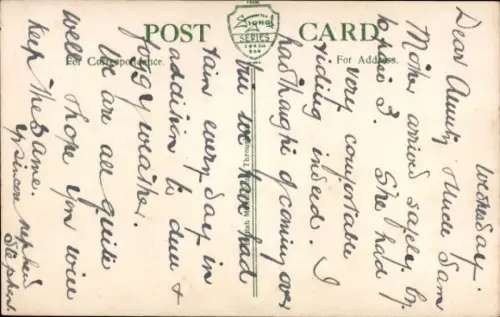 POST CARD
Signal
SERIES
For Correspondence.
For Address.
Wednesday.
Dear Aunty Uncle Sam
Mother arrived safely by
3. She had
very comfortable
riding indeed. I
of coming over
we have had
rain every day in
addition to dull &
foggy weather.
We are all quite
well hope you will
keep the same.
Yr sincere nephew
Stephen